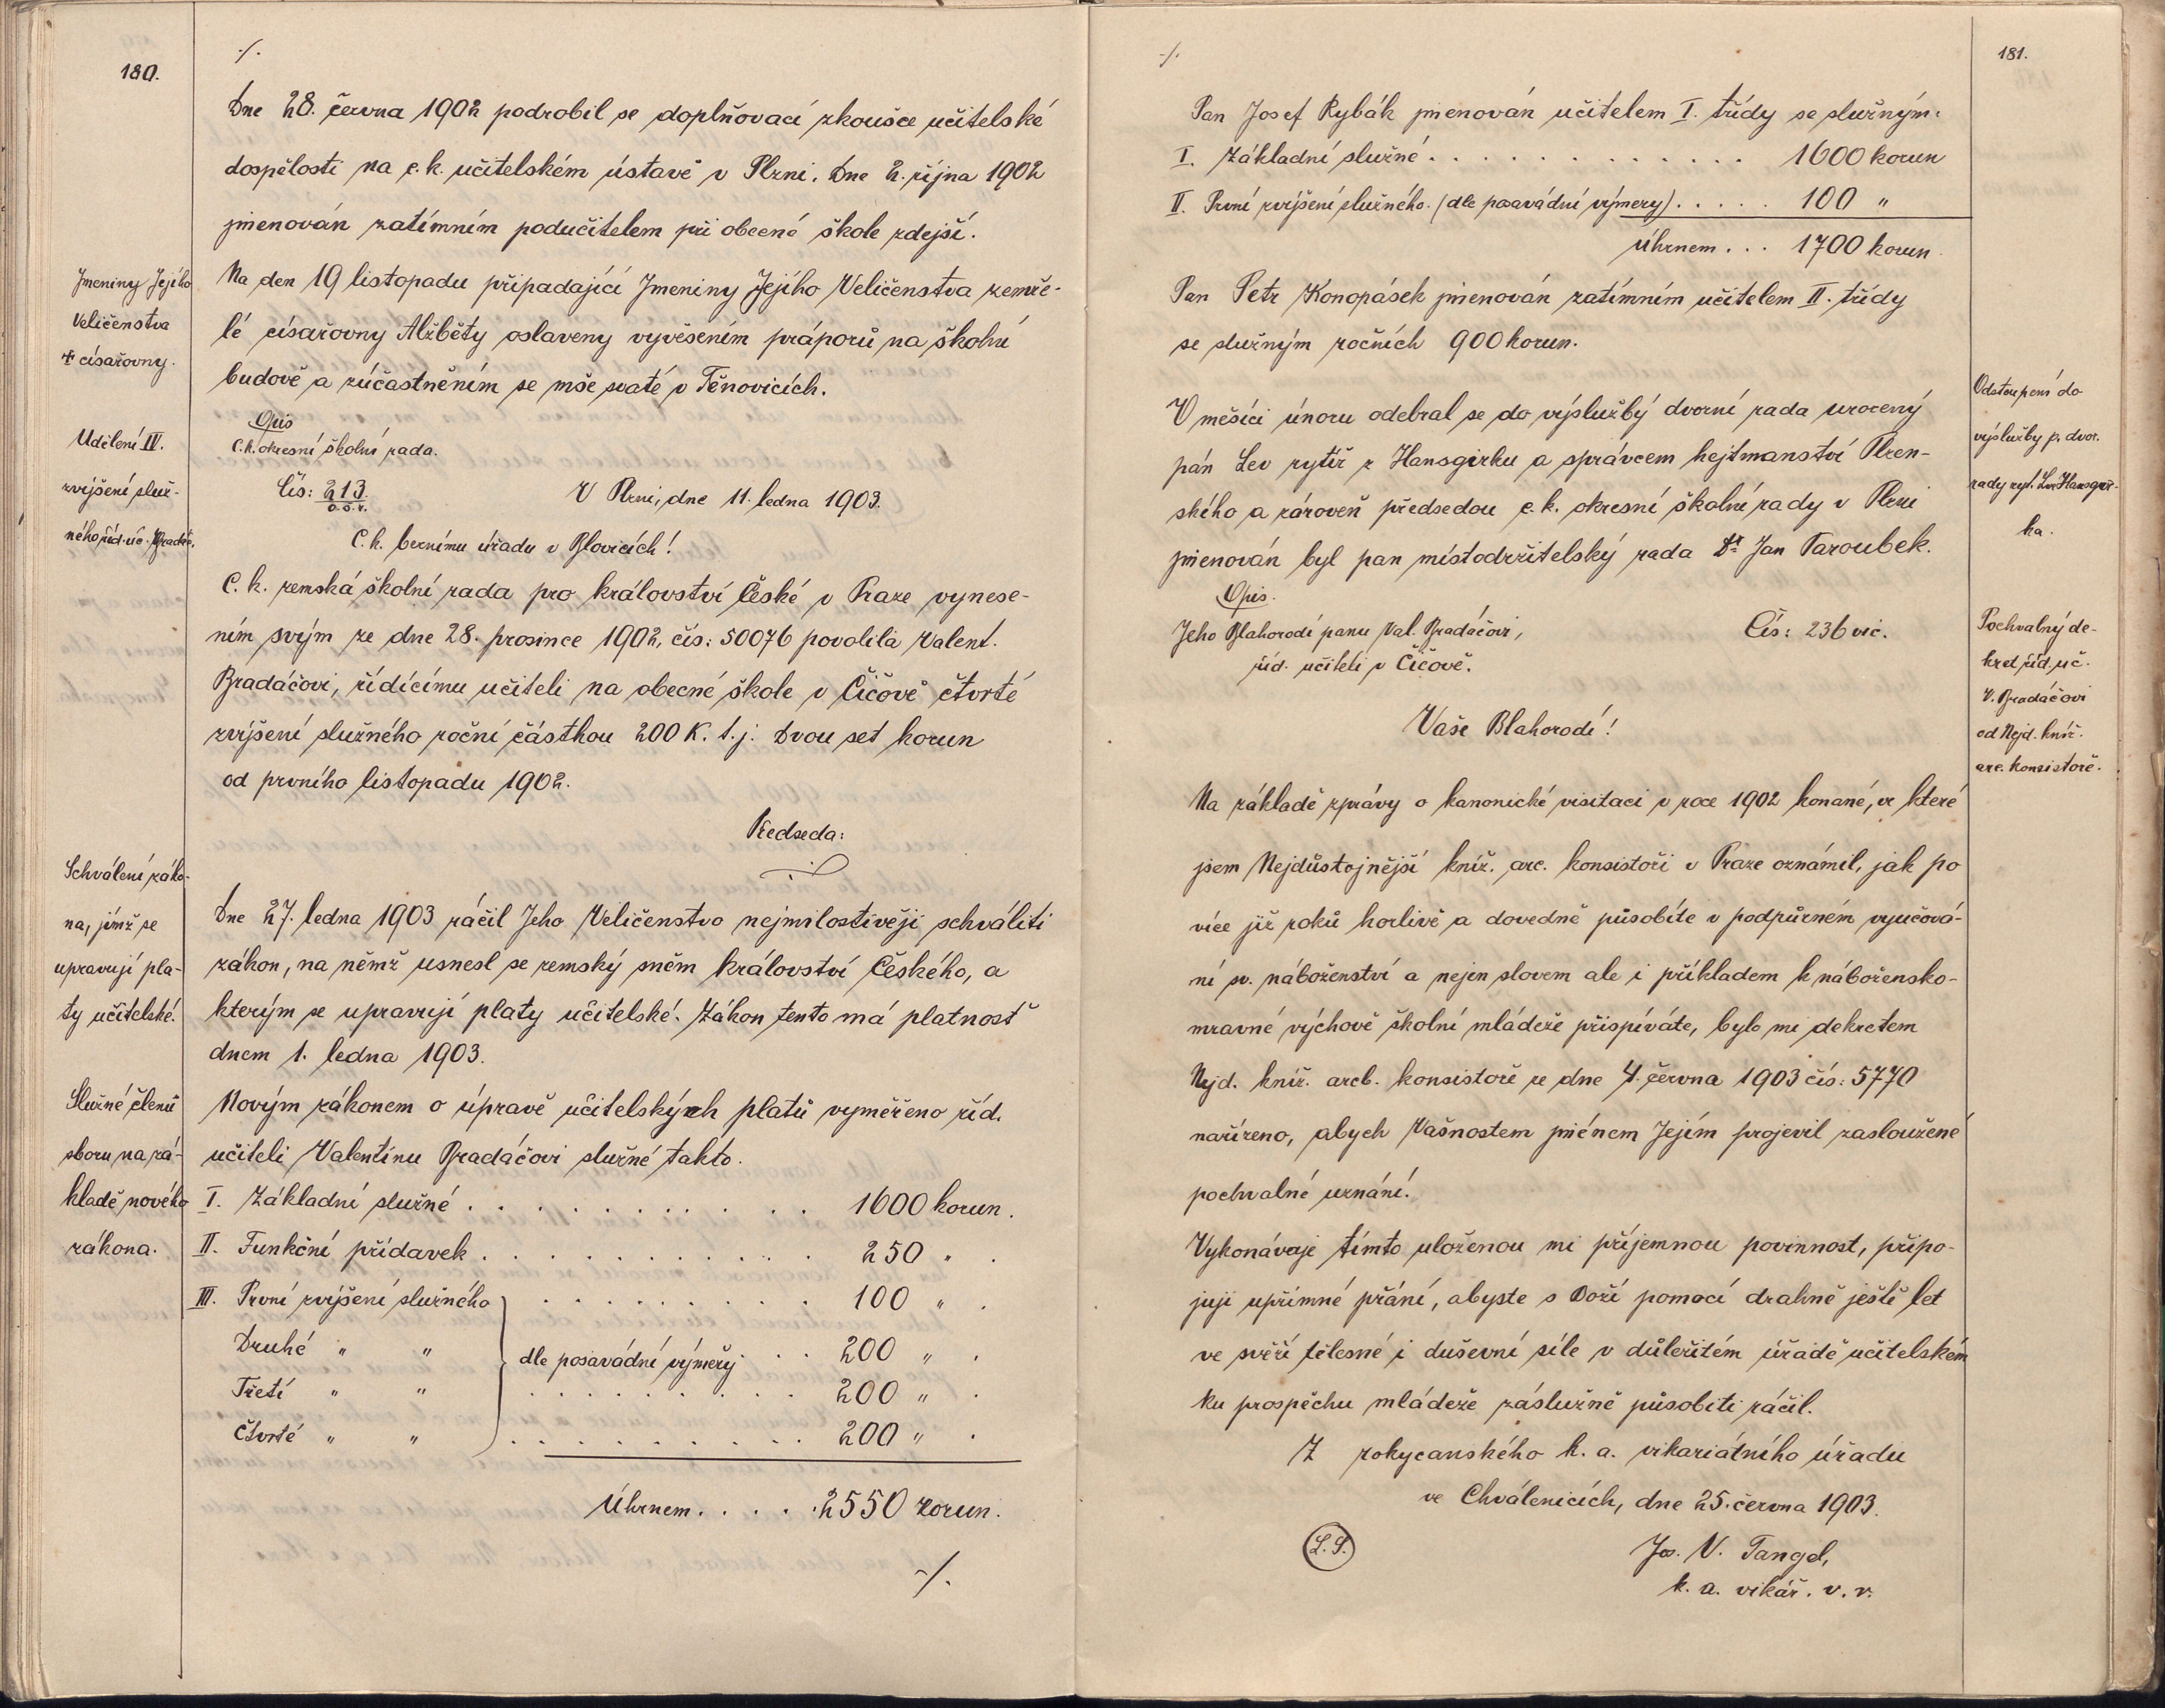 180.
./.
Dne 28. června 1902 podrobil se doplňovací zkoušce učitelské
dospělosti na c.k. učitelském ústavě v Plzni. Dne 2. října 1902
jmenován zatímním podučitelem při obecné škole zdejší.
Jmeniny Jejího
Veličenstva
† císařovny.
Na den 19 listopadu připadající Jmeniny Jejího Veličenstva zemře-
lé císařovny Alžběty oslaveny vyvěšením práporů na školní
budově a zúčastněním se mše svaté v Těnovicích.
Udělení IV.
zvýšení služ-
ného říd. uč. Bradáč.
Opis
C.k. okresní školní rada.
Čís: 213. V Plzni, dne 11. ledna 1903.
o.š.r.
C.k. bernímu úřadu v Blovicích!
C.k. zemská školní rada pro království České v Praze vynese-
ním svým ze dne 28. prosince 1902, čís: 50076 povolila Valent.
Bradáčovi, řídícímu učiteli na obecné škole v Číčově čtvrté
zvýšení služného roční částkou 200 K. t.j. Dvou set korun
od prvního listopadu 1902.
Předseda:
Schválení záko-
na, jímž se
upravují pla-
ty učitelské.
Dne 27. ledna 1903 ráčil Jeho Veličenstvo nejmilostivěji schváliti
zákon, na němž usnesl se zemský sněm království Českého, a
kterým se upravují platy učitelské. Zákon tento má platnosť
dnem 1. ledna 1903.
Služné členů
sboru na zá-
kladě nového
zákona.
Novým zákonem o úpravě učitelských platů vyměřeno říd.
učiteli Valentinu Bradáčovi služné takto.
I. Základní služné . . . . . . . . . . 1600 korun.
II. Funkční přídavek . . . . . . . . . . 250 " .
III. První zvýšení služného . . . . . . . . . 100 " .
Druhé " " dle posavádní výměry . . 200 " .
Třetí " " . . . . . . . . . 200 " .
Čtvrté " " . . . . . . . . . 200 " .
Úhrnem . . . . . 2550 korun.
./.
./.
181.
Pan Josef Rybák jmenován učitelem I. třídy se služným:
I. Základní služné . . . . . . . . . . . . . 1600 korun
II. První zvýšení služného. (dle posavádní výměry) . . . . . 100 "
Úhrnem . . . 1700 korun.
Pan Petr Konopásek jmenován zatímním učitelem II. třídy
se služným ročních 900 korun.
Odstoupení do
výslužby p. dvor.
rady ryt. Lva Hansgir-
ka.
V měsíci únoru odebral se do výslužbý dvorní rada urozený
pán Lev rytíř z Hansgirku a správcem hejtmanství Plzen-
ského a zároveň předsedou c.k. okresní školní rady v Plzni
jmenován byl pan místodržitelský rada Dr Jan Taroubek.
Pochvalný de-
kret říd. uč.
V. Bradáčovi
od Nejd. kníž.
arc. konsistoře.
Opis.
Jeho Blahorodí panu Val. Bradáčovi, Čís: 236 vic.
říd. učiteli v Číčově.
Vaše Blahorodí!
Na základě zprávy o kanonické visitaci v roce 1902 konané, ve které
jsem Nejdůstojnější kníž. arc. konsistoři v Praze oznámil, jak po
více již roků horlivě a dovedně působíte v podpůrném vyučová-
ní sv. náboženství a nejen slovem ale i příkladem k nábožensko-
mravné výchově školní mládeže přispíváte, bylo mi dekretem
Nejd. kníž. arcb. konsistoře ze dne 4. června 1903 čís: 5770
nařízeno, abych Vašnostem jménem Jejím projevil zasloužené
pochvalné uznání.
Vykonávaje tímto uloženou mi příjemnou povinnost, připo-
juji upřímné přání, abyste s Boží pomocí drahně ještě let
ve svěží tělesné i duševní síle v důležitém úřadě učitelském
ku prospěchu mládeže záslužně působiti ráčil.
Z rokycanského k. a. vikariátního úřadu
ve Chválenicích, dne 25. června 1903.
L.S.
Jos. V. Tangel,
k. a. vikář. v. r.